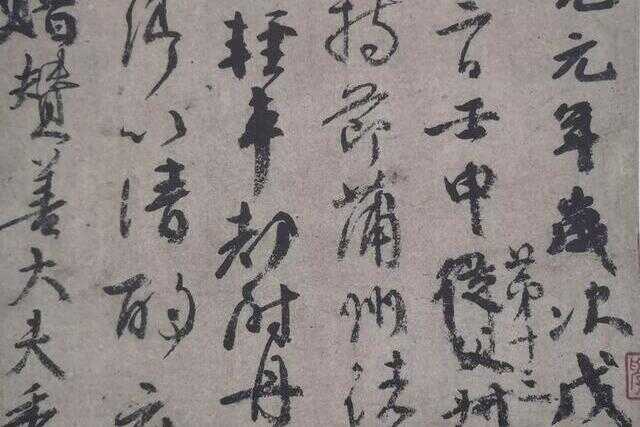 元年歲次戊
三日壬申
第十三
持節蒲州諸
輕車都尉丹
卿以清酌
贈贊善大夫季